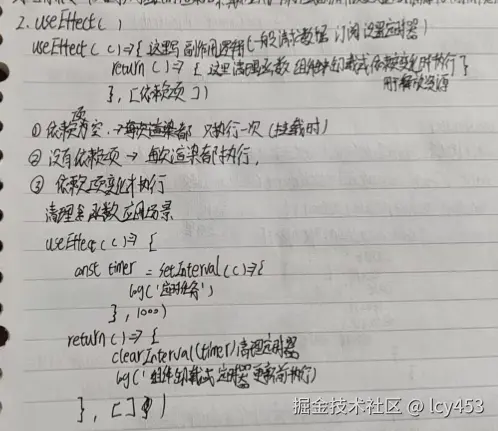 2. useEffect( )
useEffect( ()=>{ 这里写副作用逻辑(一般请求数据 订阅 设置定时器)
return ()=> { 这里清理函数 组件卸载或依赖变化时执行 }
用于释放资源
}, [依赖项])
① 依赖项为空 → 每次渲染都 只执行一次 (挂载时)
② 没有依赖项 → 每次渲染都执行,
③ 依赖项变化才执行
清理函数应用场景
useEffect( ()=> {
const timer = setInterval( ()=>{
log('定时任务')
}, 1000)
return ()=> {
clearInterval(timer)清理定时器
log('组件卸载或定时器更新前执行)
}, [] )
掘金技术社区 @ lcy453